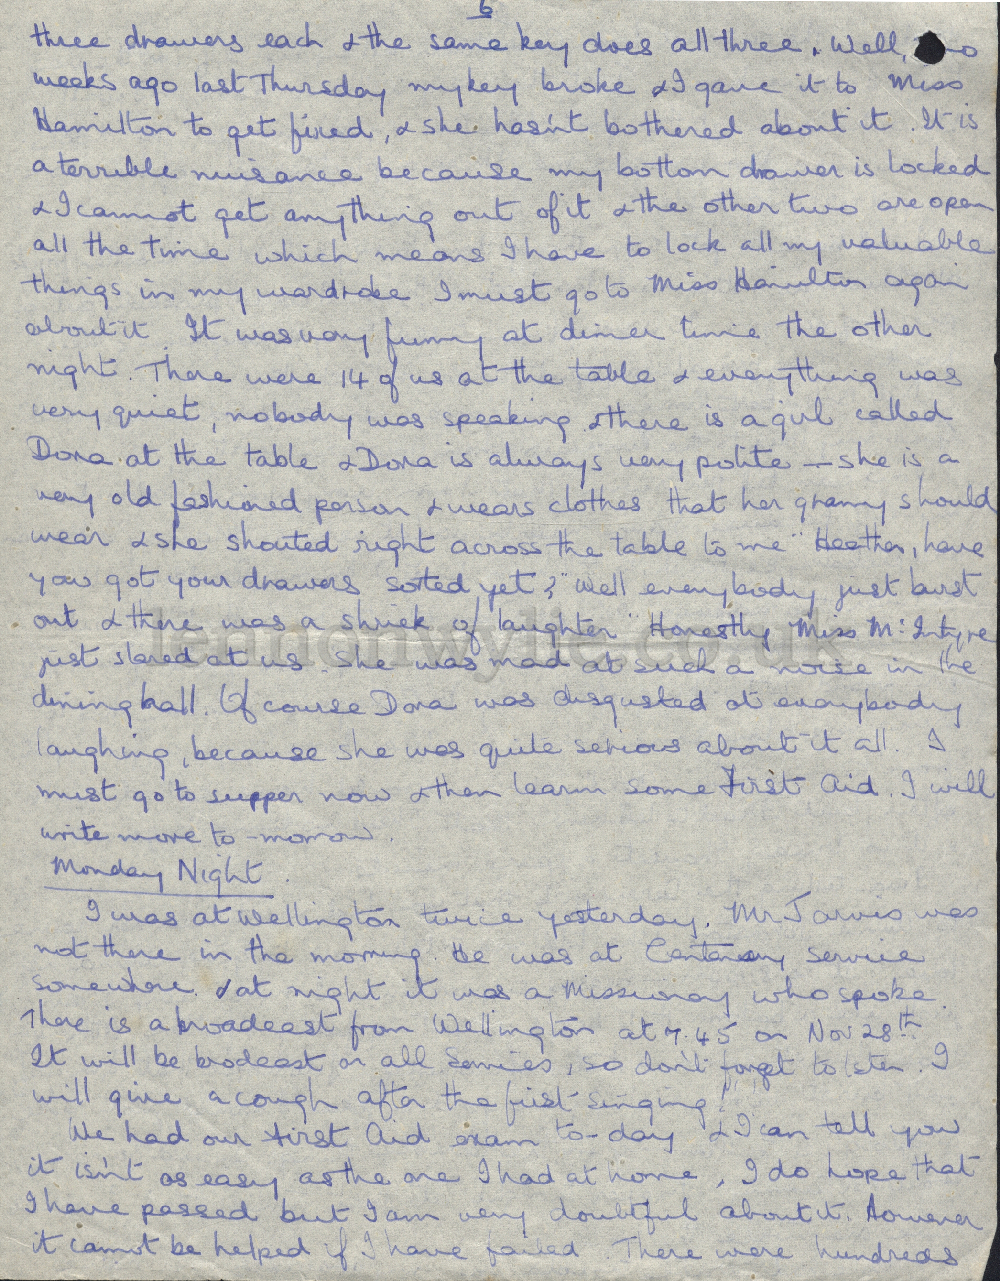 6
three drawers each & the same key does all three. Well, two
weeks ago last Thursday my key broke & I gave it to Miss
Hamilton to get fixed, & she hasn't bothered about it. It is
a terrible nuisance because my bottom drawer is locked
& I cannot get anything out of it & the other two are open
all the time which means I have to lock all my valuable
things in my wardrobe I must go to Miss Hamilton again
about it. It was very funny at dinner time the other
night. There were 14 of us at the table & everything was
very quiet, nobody was speaking & there is a girl called
Dora at the table & Dora is always very polite – she is a
very old fashioned person & wears clothes that her granny should
wear & she shouted right across the table to me "Heather, have
you got your drawers sorted yet?" Well everybody just burst
out & there was a shriek of laughter" Honestly Miss McIntyre
just stared at us. She was mad at such a noise in the
dining hall. Of course Dora was disgusted at everybody
laughing, because she was quite serious about it all. I
must go to supper now & then learn some First Aid. I will
write more to-morrow.
Monday Night.
I was at Wellington twice yesterday. Mr Jarvis was
not there in the morning. He was at Centenary service
somewhere & at night it was a Missionary who spoke.
There is a broadcast from Wellington at 7.45 on Nov 28th.
It will be brodcast on all Services, so don't forget to listen. I
will give a cough after the first singing!
We had our First Aid exam to-day & I can tell you
it isn't as easy as the one I had at home, I do hope that
I have passed but I am very doubtful about it. However
it cannot be helped if I have failed. There were hundreds
lennonwylie.co.uk